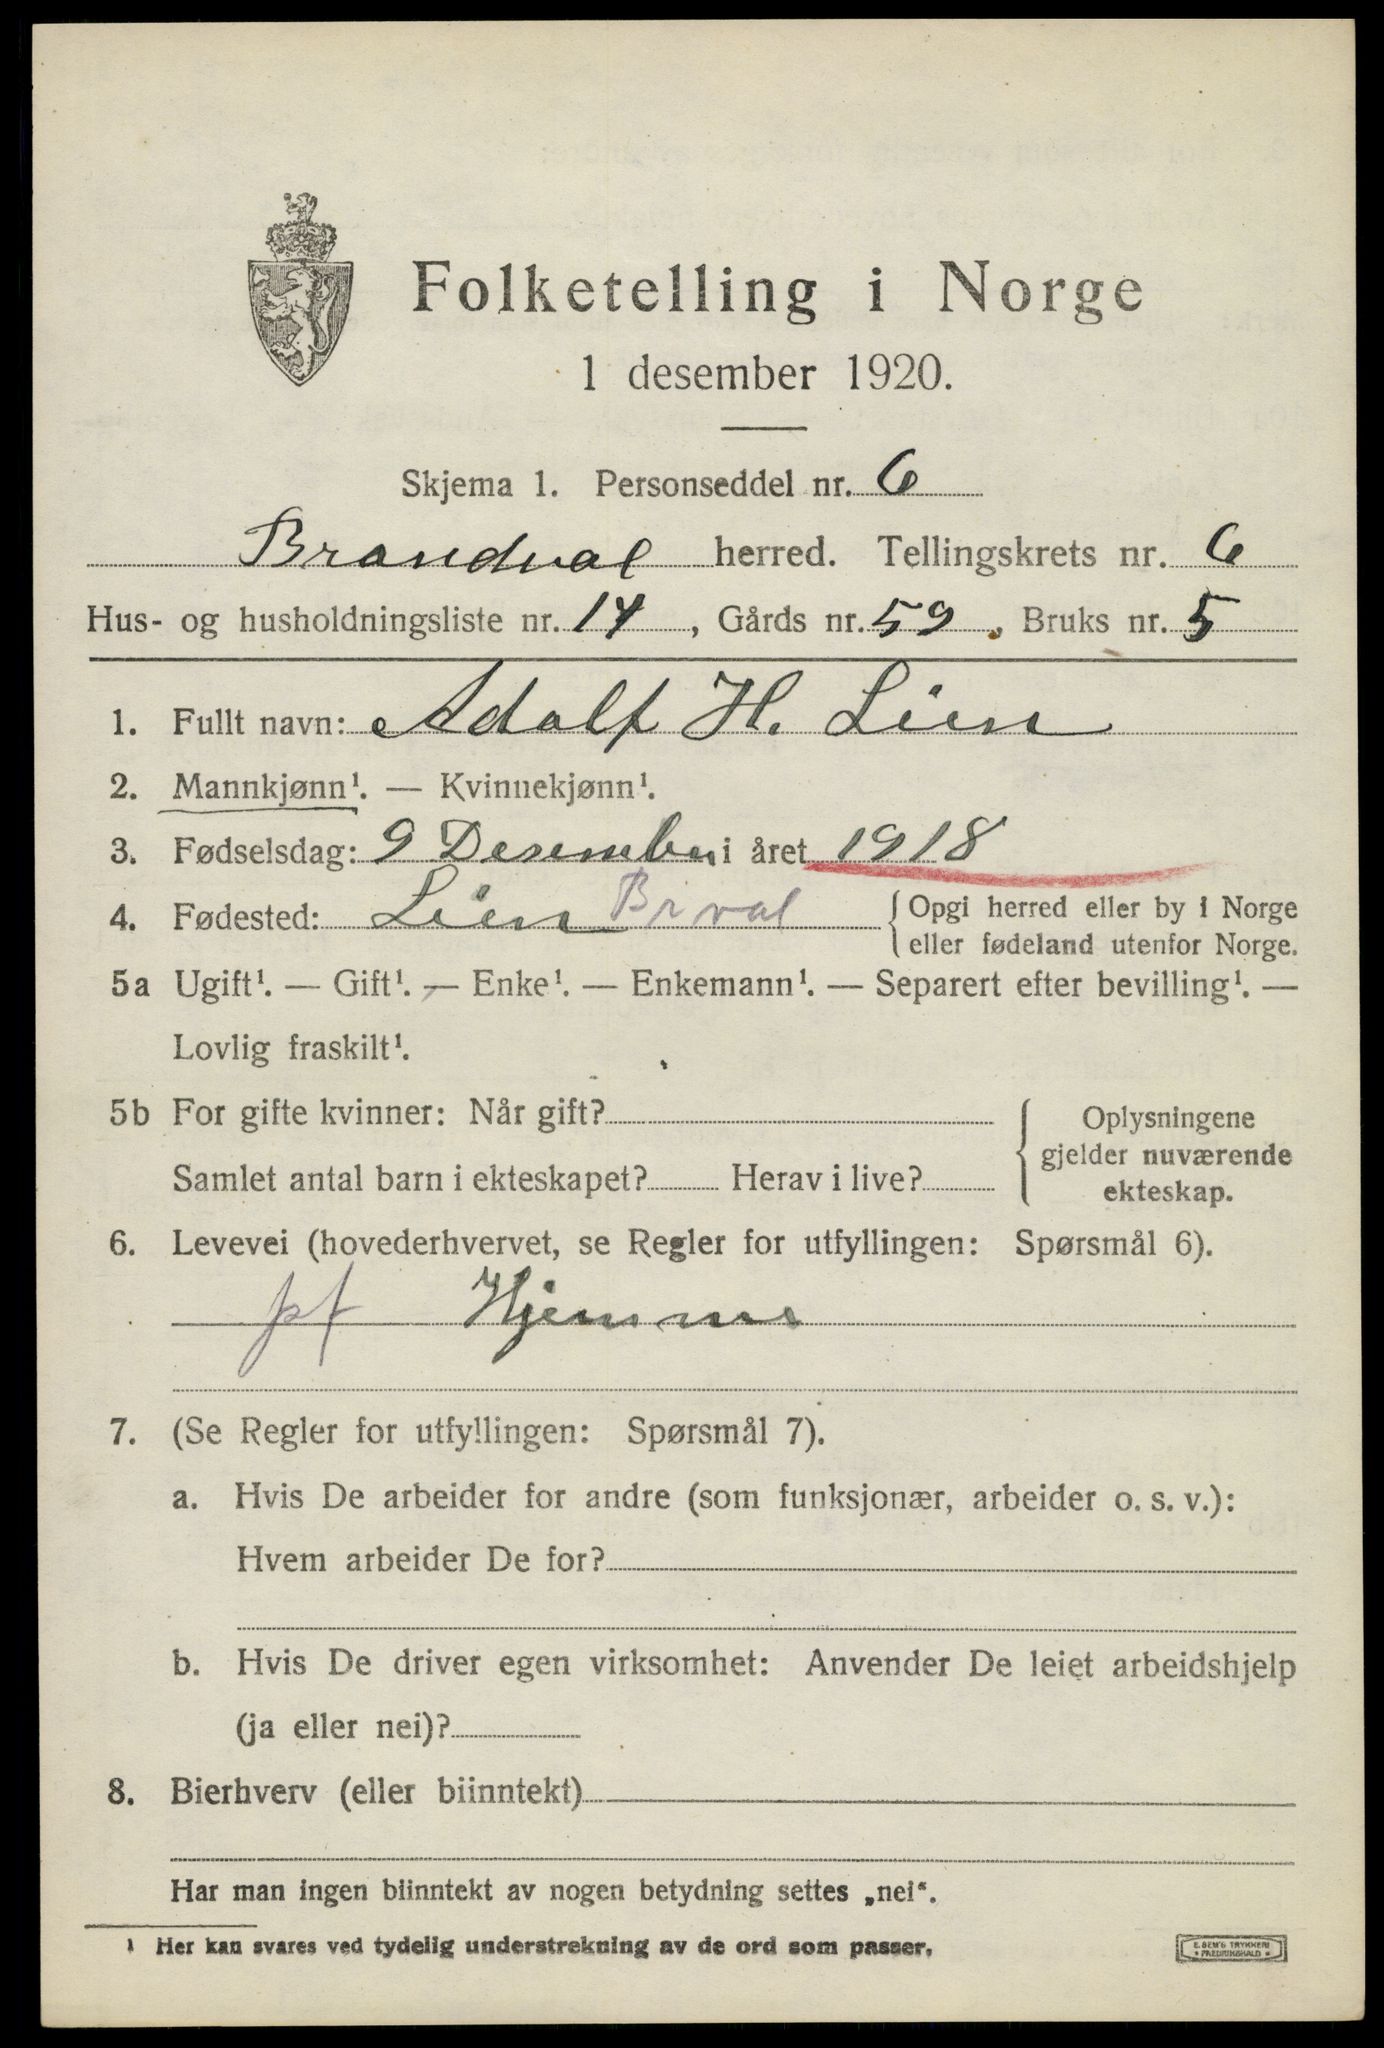 Folketelling i Norge
1 desember 1920.
Skjema 1. Personseddel nr. 6
Brandval herred. Tellingskrets nr. 6
Hus- og husholdningsliste nr. 14, Gårds nr. 59, Bruks nr. 5
1. Fullt navn: Adolf H. Lien
2. Mannkjønn¹. — Kvinnekjønn¹.
3. Fødselsdag: 9 Desember i året 1918
4. Fødested: Lien Brval {Opgi herred eller by i Norge
eller fødeland utenfor Norge.
5a Ugift¹. — Gift¹. — Enke¹. — Enkemann¹. — Separert efter bevilling¹. —
Lovlig fraskilt¹.
5b For gifte kvinner: Når gift?
Samlet antal barn i ekteskapet? Herav i live?
Oplysningene
gjelder nuværende
ekteskap.
6. Levevei (hovederhvervet, se Regler for utfyllingen: Spørsmål 6).
pf Hjemme
7. (Se Regler for utfyllingen: Spørsmål 7).
a. Hvis De arbeider for andre (som funksjonær, arbeider o. s. v.):
Hvem arbeider De for?
b. Hvis De driver egen virksomhet: Anvender De leiet arbeidshjelp
(ja eller nei)?
8. Bierhverv (eller biinntekt)
Har man ingen biinntekt av nogen betydning settes „nei“.
¹ Her kan svares ved tydelig understrekning av de ord som passer.
E. SEM'S TRYKKERI
* FREDRIKSHALD *